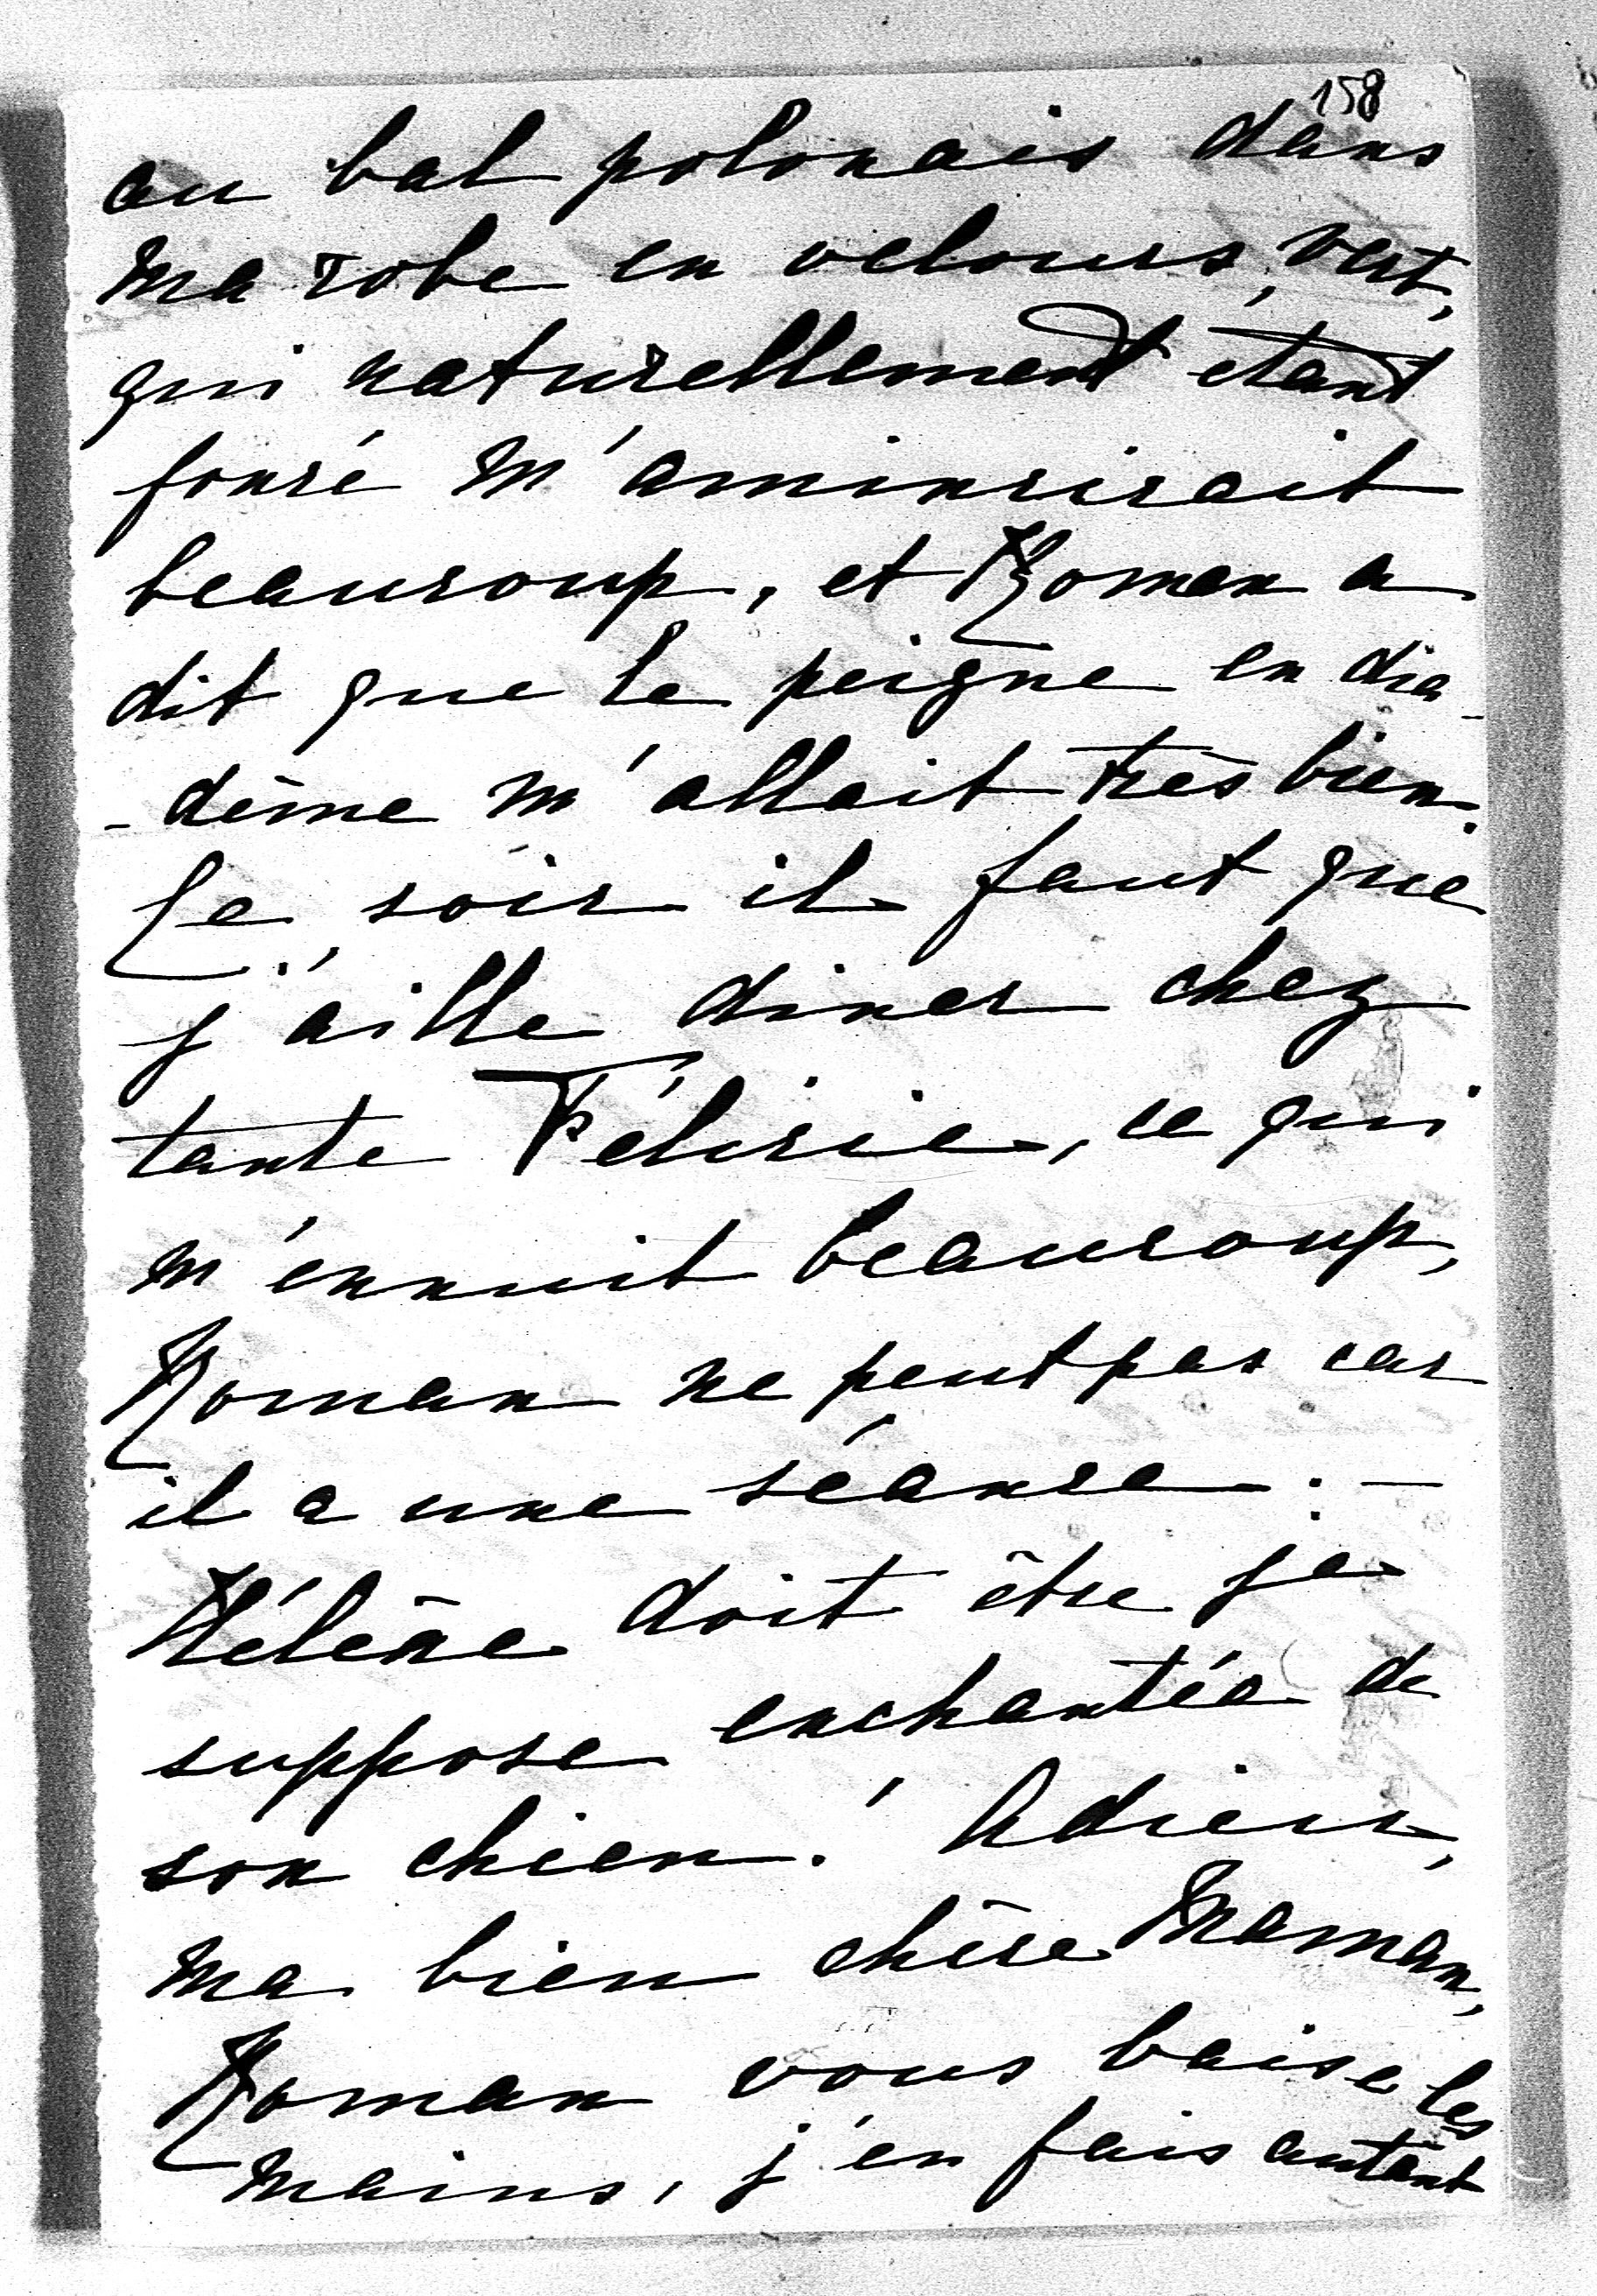 158
au bal polonais dans
ma robe en velours, vert,
qui naturellement étant
foncé m'amincirait
beaucoup, et Roman a
dit que le peigne en dia-
-dème m'allait très bien.
Le soir il faut que
j'aille dîner chez
tante Félicie, ce qui
m'ennuit beaucoup,
Roman ne peut pas car
il a une séance. —
Hélène doit être je
suppose enchantée de
son chien! Adieu,
ma bien chère Maman,
Roman vous baise les
mains, j'en fais autant